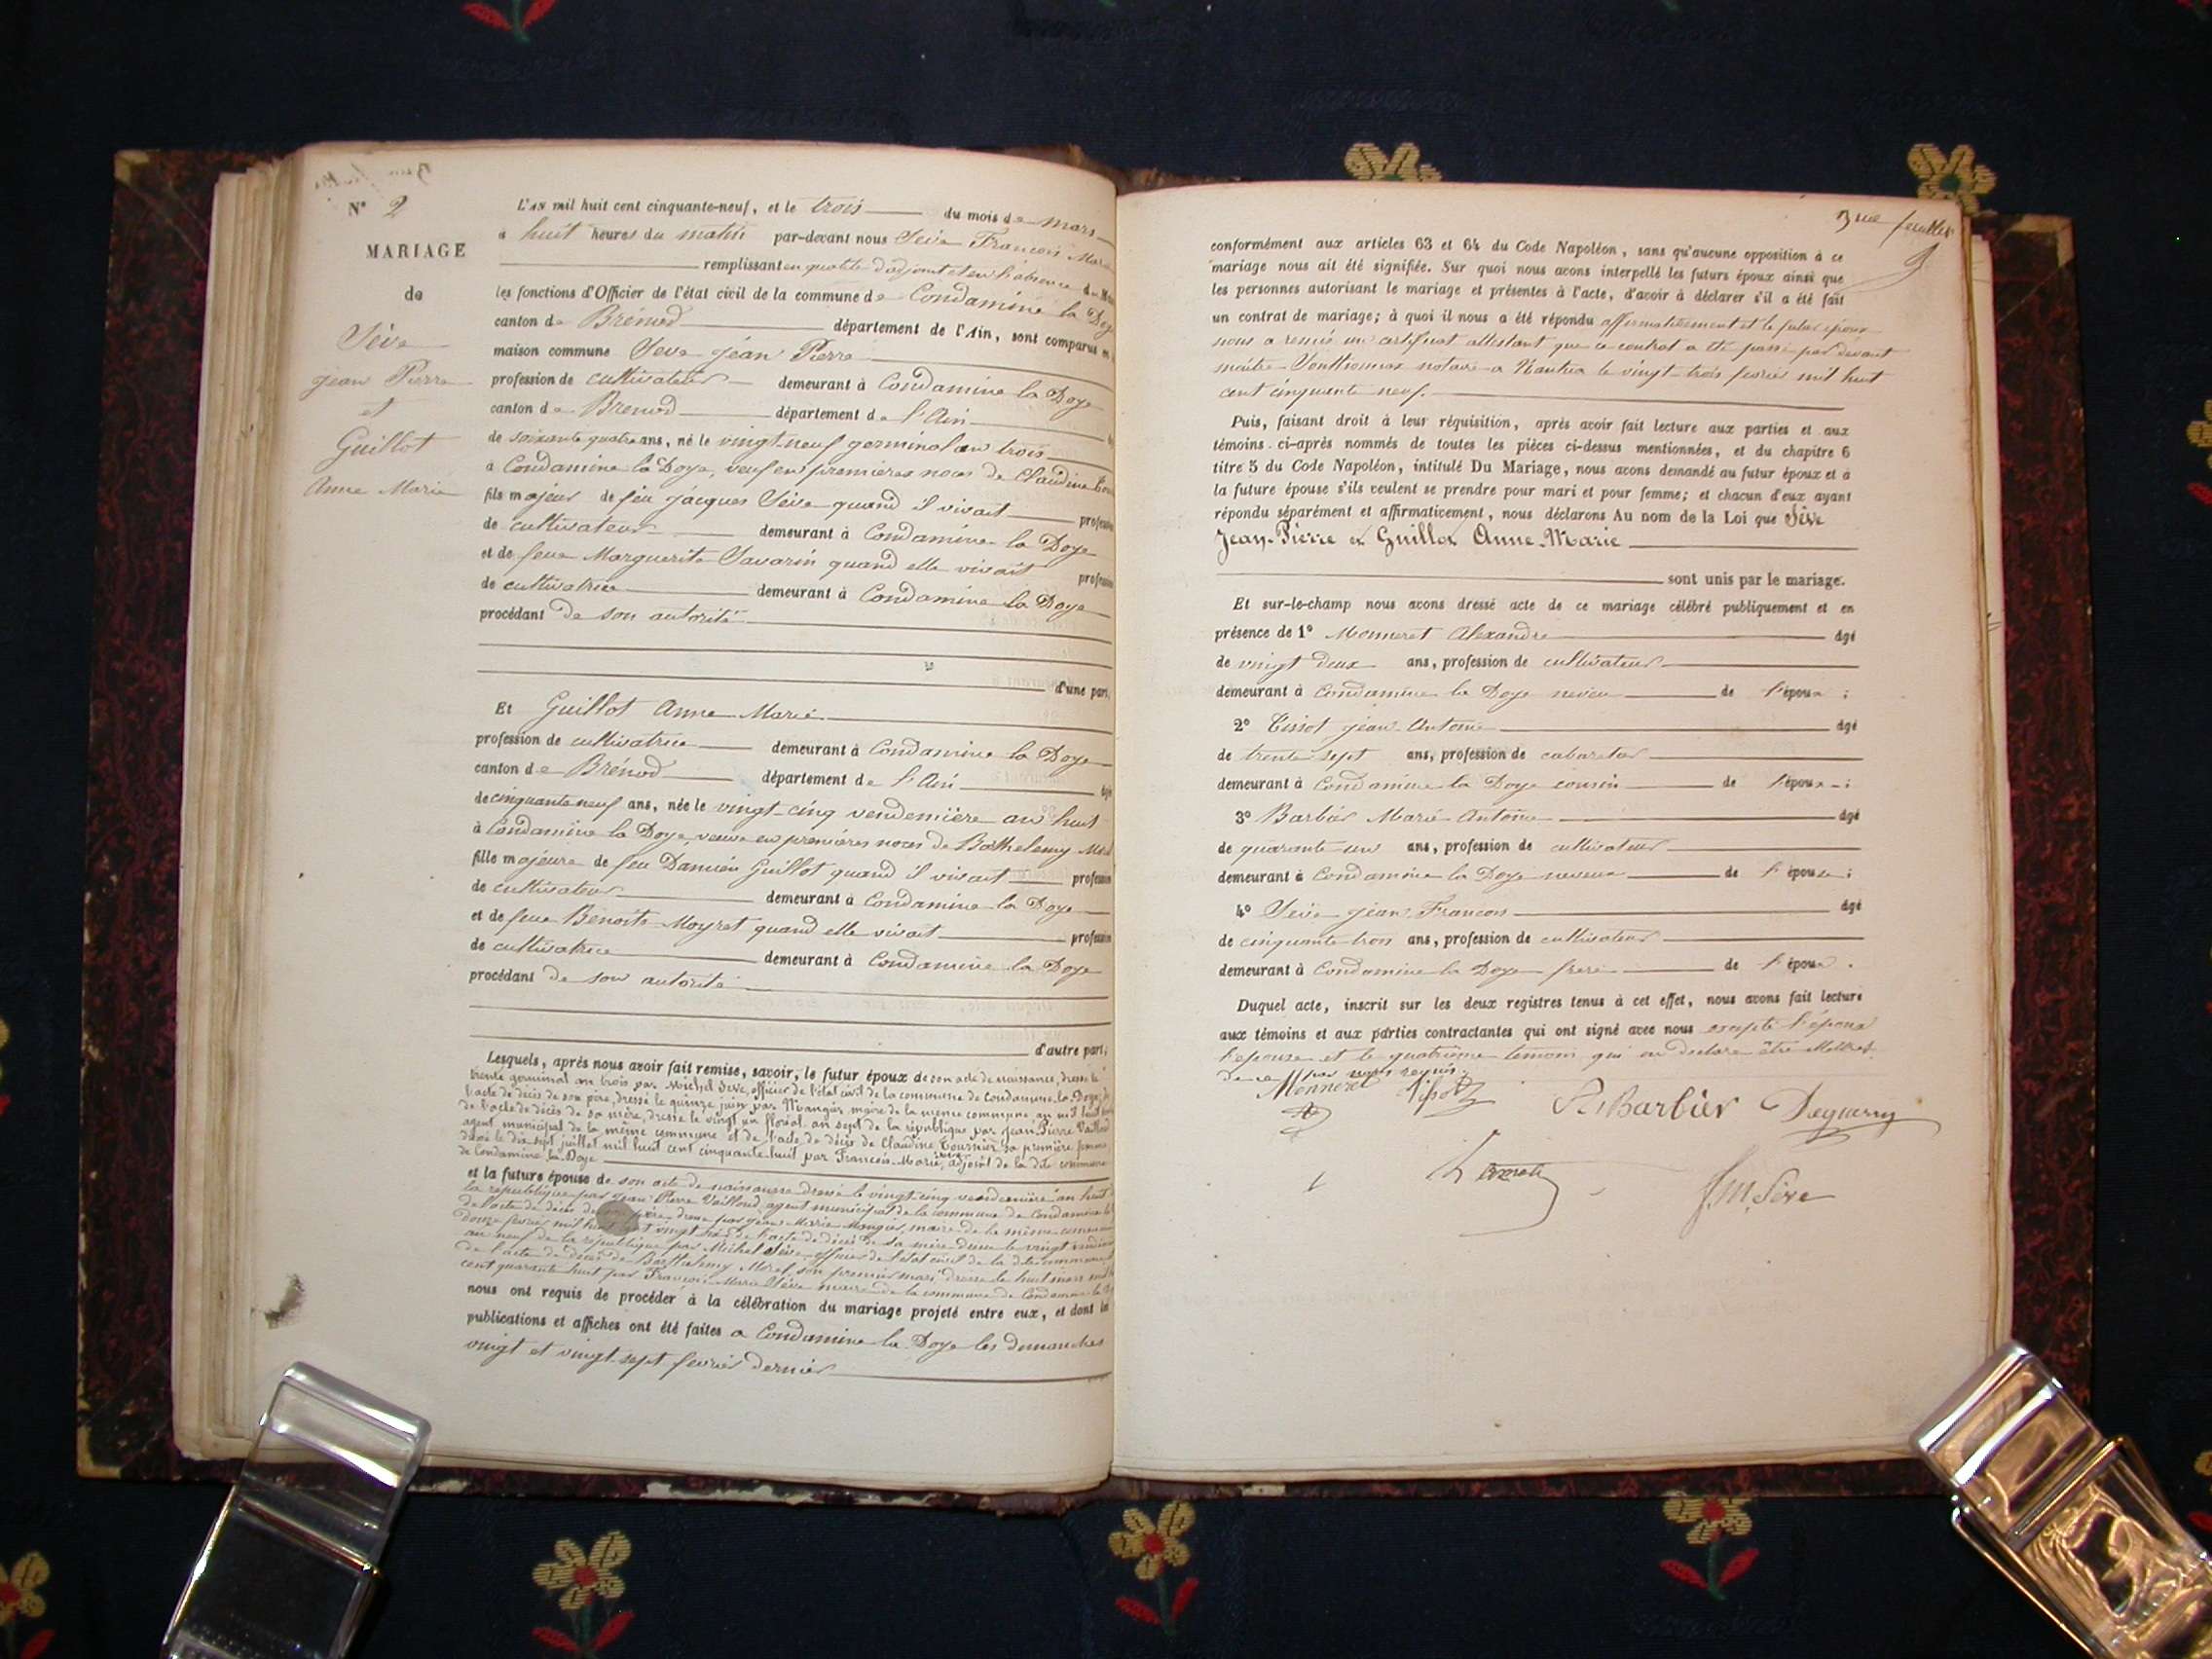 N° 2
MARIAGE
de
Sève
jean Pierre
et
Guillot
Anne Marie
L'AN mil huit cent cinquante-neuf, et le trois du mois de mars
à huit heures du matin par-devant nous Sève François Marie
remplissant en qualité d'adjoint et en l'absence du
les fonctions d'Officier de l'état civil de la commune de Condamine la Doye
canton de Brénod département de l'Ain, sont comparus en
maison commune Seve jean Pierre
profession de cultivateur demeurant à Condamine la Doye
canton de Brenod département de l'Ain
de soixante quatre ans, né le vingt-neuf germinal an trois
à Condamine la Doye, veuf en premières noces de Claudine
fils majeur de feu jacques Sève quand il vivait profession
de cultivateur demeurant à Condamine la Doye
et de feue Marguerite Savarin quand elle vivait profession
de cultivatrice demeurant à Condamine la Doye
procédant de son autorité
d'une part,
Et Guillot Anne Marie
profession de cultivatrice demeurant à Condamine la Doye
canton de Brénod département de l'Ain âgé
de cinquante neuf ans, née le vingt-cinq vendemière an huit
à Condamine la Doye, veuve en premières noces de Barthelemy
fille majeure de feu Damien Guillot quand il vivait profession
de cultivateur demeurant à Condamine la Doye
et de feue Benoite Moyret quand elle vivait profession
de cultivatrice demeurant à Condamine la Doye
procédant de son autorité
d'autre part;
Lesquels, après nous avoir fait remise, savoir, le futur époux de son acte de naissance, dressé le
trente germinal an trois par Michel Seve, officier de l'état civil de la commune de Condamine la Doye;
l'acte de décès de son père, dressé le quinze juin par Mangier, maire de la même commune, an mil huit
de l'acte de décès de sa mère, dressé le vingt un floréal an sept de la république par Jean Pierre Vailloud
agent municipal de la même commune et de l'acte de décès de Claudine Tournier sa première femme,
dressé le dix sept juillet mil huit cent cinquante huit par François-Marie Sève, adjoint de la dite commune
de Condamine la Doye
et la future épouse de son acte de naissance dressé le vingt-cinq vendemière an huit
la republique par jean Pierre Vailloud agent municipal de la commune de Condamine la
de l'acte de décès de son père, dressé par jean Marie Mangier, maire de la même commune
douze fevrier mil huit cent vingt de l'acte de décès de sa mère dressé le vingt
an neuf de la république par Michel Sève officier de l'état civil de la dite commune
de l'acte de décès de Barthelemy Moret, son premier mari dressé le huit mars mil
cent quarante huit par François Marie Sève maire de la commune de Condamine la
nous ont requis de procéder à la célébration du mariage projeté entre eux, et dont les
publications et affiches ont été faites a Condamine la Doye les dimanches
vingt et vingt sept fevrier dernier
3me feuillet
conformément aux articles 63 et 64 du Code Napoléon, sans qu'aucune opposition à ce
mariage nous ait été signifiée. Sur quoi nous avons interpellé les futurs époux ainsi que
les personnes autorisant le mariage et présentes à l'acte, d'avoir à déclarer s'il a été fait
un contrat de mariage; à quoi il nous a été répondu affirmativement et le futur époux
nous a remis un certificat attestant que ce contrat a été passé par devant
maître notaire a Nantua le vingt-trois fevrier mil huit
cent cinquante neuf.
Puis, faisant droit à leur réquisition, après avoir fait lecture aux parties et aux
témoins ci-après nommés de toutes les pièces ci-dessus mentionnées, et du chapitre 6
titre 5 du Code Napoléon, intitulé Du Mariage, nous avons demandé au futur époux et à
la future épouse s'ils veulent se prendre pour mari et pour femme; et chacun d'eux ayant
répondu séparément et affirmativement, nous déclarons Au nom de la Loi que Sève
Jean-Pierre et Guillot Anne-Marie
sont unis par le mariage.
Et sur-le-champ nous avons dressé acte de ce mariage célébré publiquement et en
présence de 1° Monneret Alexandre âgé
de vingt deux ans, profession de cultivateur
demeurant à Condamine la Doye neveu de l'époux;
2° Tissot jean Antoine âgé
de trente sept ans, profession de cabaretier
demeurant à Condamine la Doye cousin de l'époux;
3° Barbier Marie Antoine âgé
de quarante un ans, profession de cultivateur
demeurant à Condamine la Doye neveu de l'épouse;
4° Sève jean François âgé
de cinquante trois ans, profession de cultivateur
demeurant à Condamine la Doye frere de l'époux.
Duquel acte, inscrit sur les deux registres tenus à cet effet, nous avons fait lecture
aux témoins et aux parties contractantes qui ont signé avec nous excepté l'époux
l'epouse et le quatrième temoin qui ont declaré être illettrés
de ce par nous requis.
Monneret Tissot Barbier
f. M. Sève